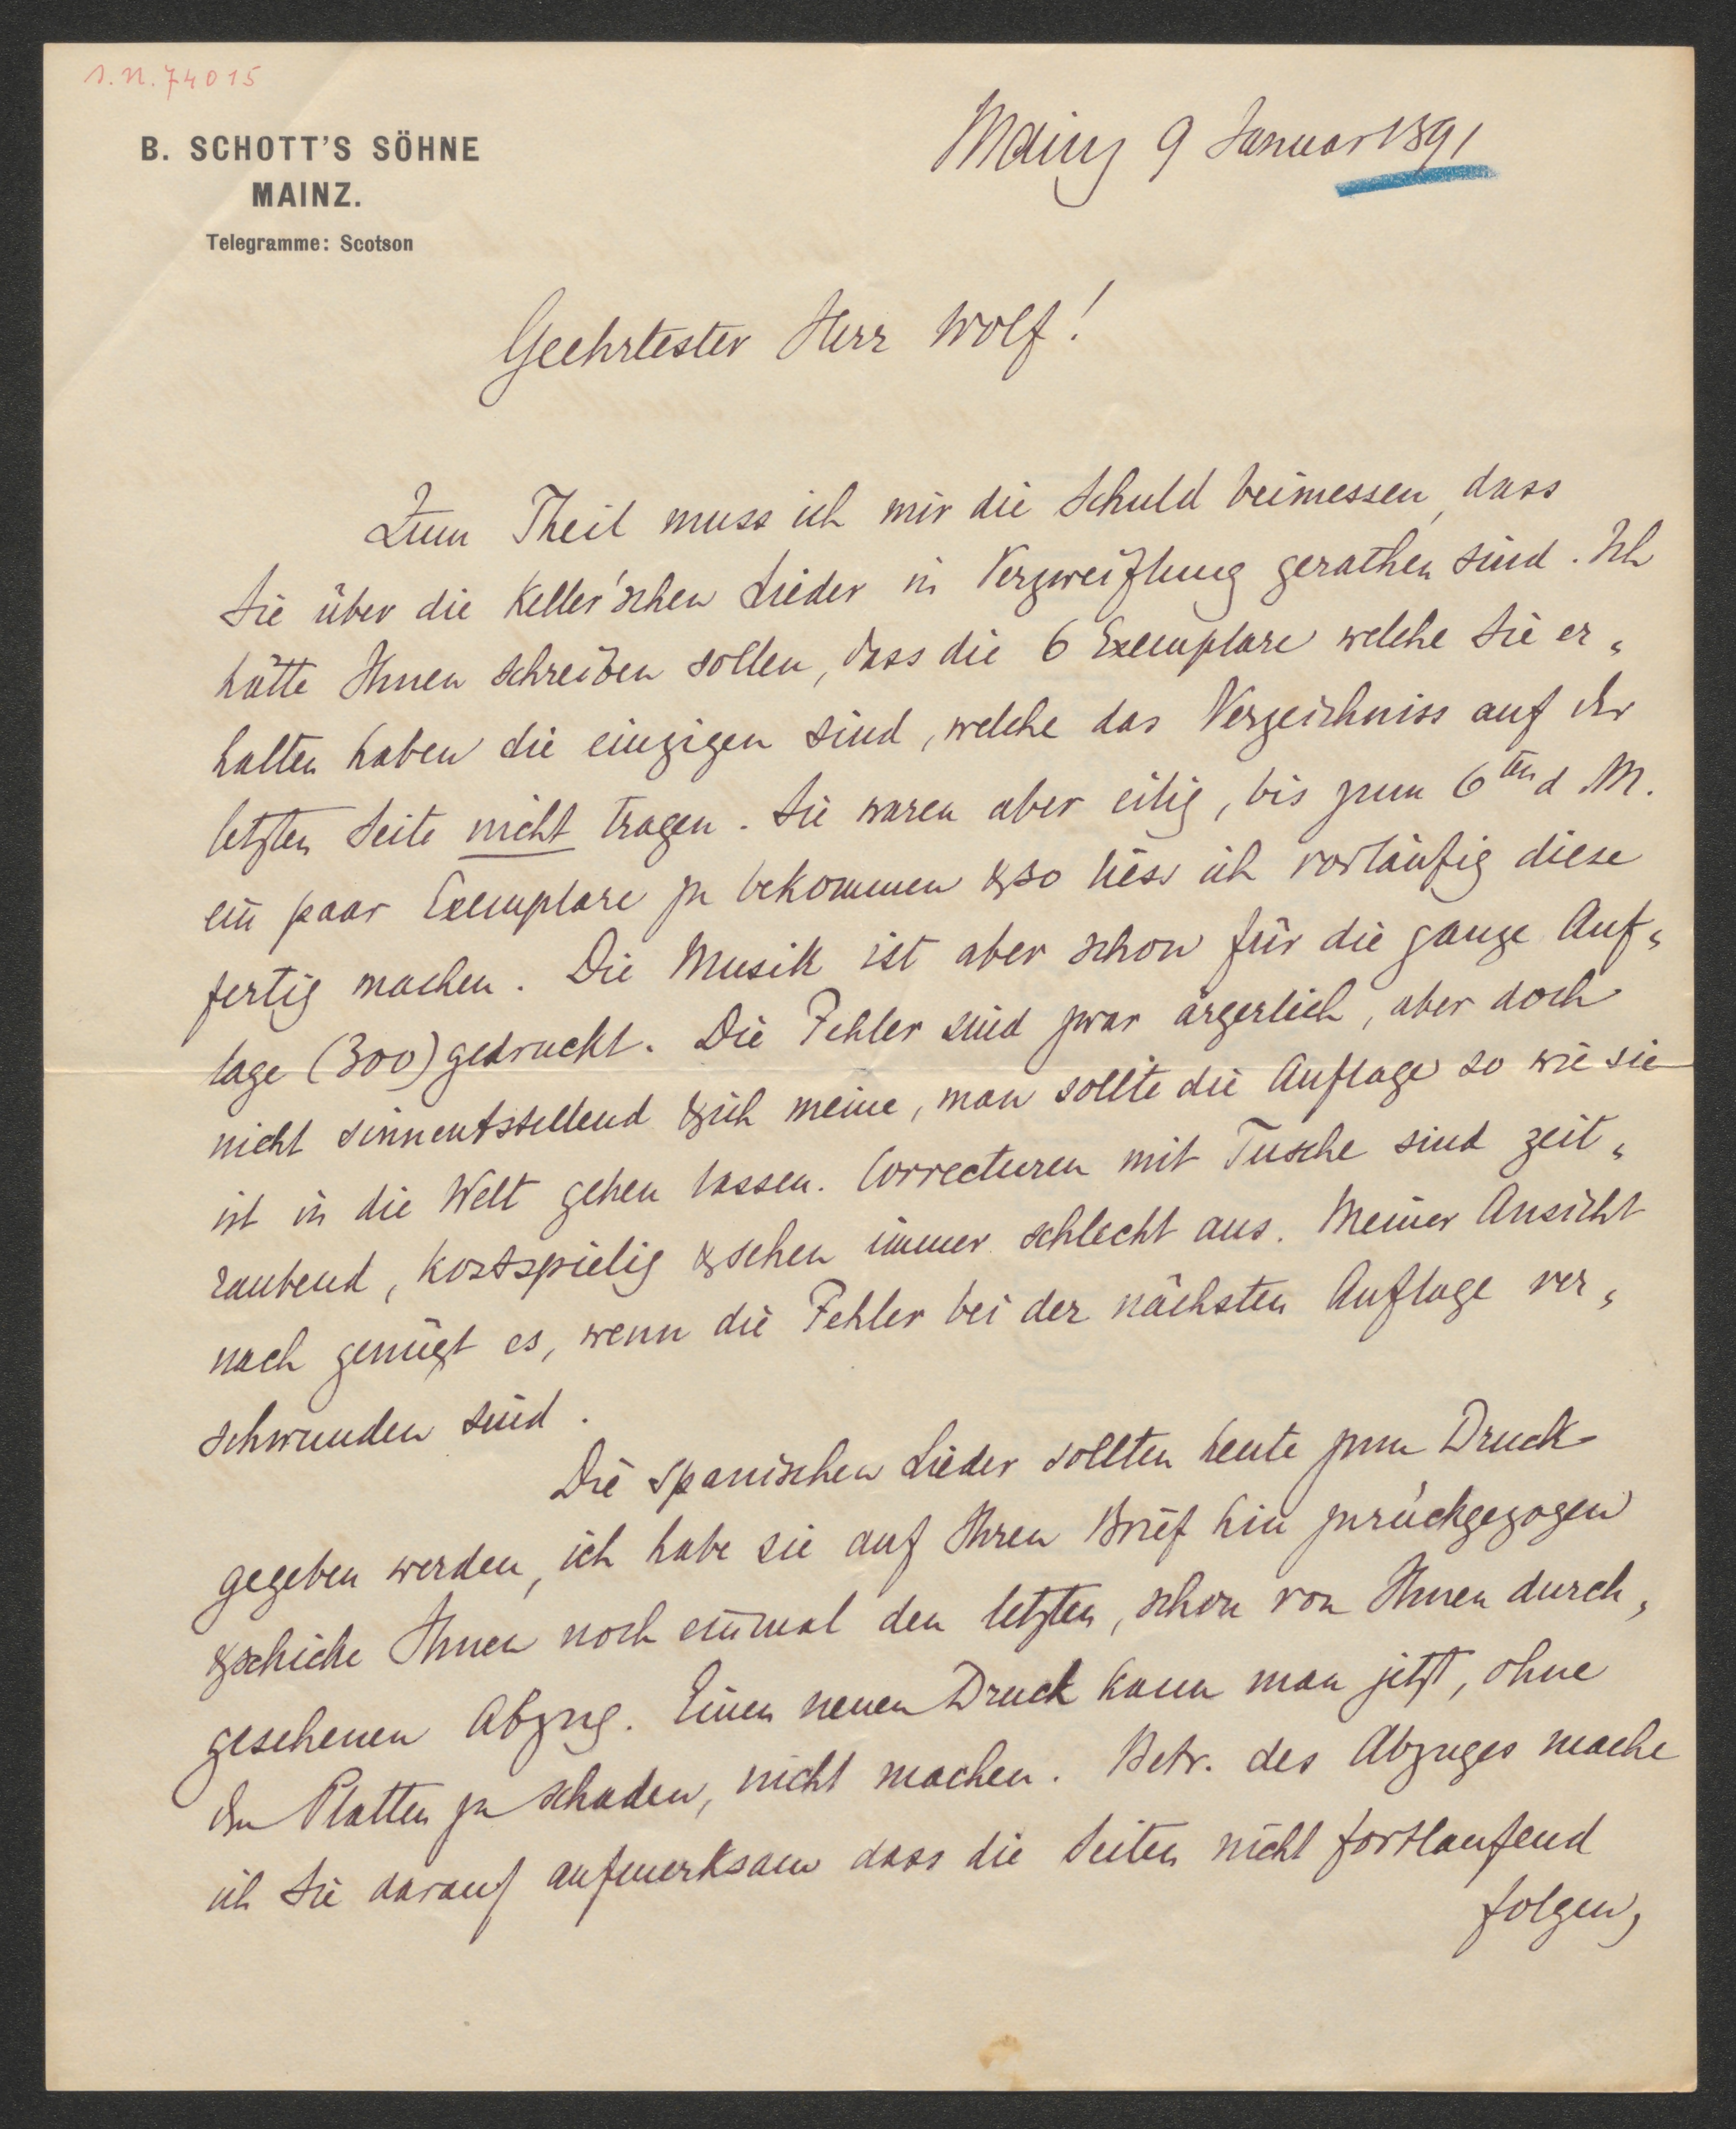 I.N. 74015
B. SCHOTT'S SÖHNE
MAINZ.
Telegramme: Scotson
Mainz 9 Januar 1891
Geehrtester Herr Wolf!
Zum Theil muss ich mir die Schuld beimessen, dass
Sie über die Keller'schen Lieder in Verzweiflung gerathen sind. Ich
hätte Ihnen schreiben sollen, dass die 6 Exemplare welche Sie er„
halten haben die einzigen sind, welche das Verzeichniss auf der
letzten Seite nicht tragen. Sie waren aber eilig, bis zum 6ten d M.
ein paar Exemplare zu bekommen & so liess ich vorläufig diese
fertig machen. Die Musik ist aber schon für die ganze Auf„
lage (300) gedruckt. Die Fehler sind zwar ärgerlich, aber doch
nicht sinnentstellend & ich meine, man sollte die Auflage so wie sie
ist in die Welt gehen lassen. Correcturen mit Tusche sind zeit„
raubend, kostspielig & sehen immer schlecht aus. Meiner Ansicht
nach genügt es, wenn die Fehler bei der nächsten Auflage ver„
schwunden sind.
Die spanischen Lieder sollten heute zum Druck
gegeben werden, ich habe sie auf Ihren Brief hin zurückgezogen
& schicke Ihnen noch einmal den letzten, schon von Ihnen durch„
gesehenen Abzug. Einen neuen Druck kann man jetzt, ohne
den Platten zu schaden, nicht machen. Betr. des Abzuges mache
ich Sie darauf aufmerksam dass die Seiten nicht fortlaufend
folgen,